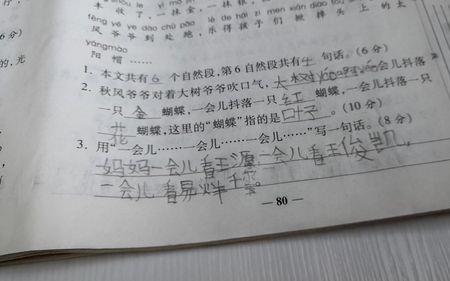 风 爷 爷 到 处 跑，乐 得 孩 子 们 掀 掉 头 上 的 太
yángmào
阳 帽 ……
6分)
的,光
1. 本文共有6个自然段,第6自然段共有 句话。(6分)
2. 秋风爷爷对着大树爷爷吹口气,大 会儿抖落
一只金蝴蝶,一会儿抖落一只红蝴蝶,一会儿抖落一只
花蝴蝶,这里的“蝴蝶”指的是叶子。(10分)
3. 用“一会儿……一会儿……一会儿……”写一句话。(8分)
妈妈一会儿看王源一会儿看王俊凯,
一会儿看易烊千玺。
— 80 —